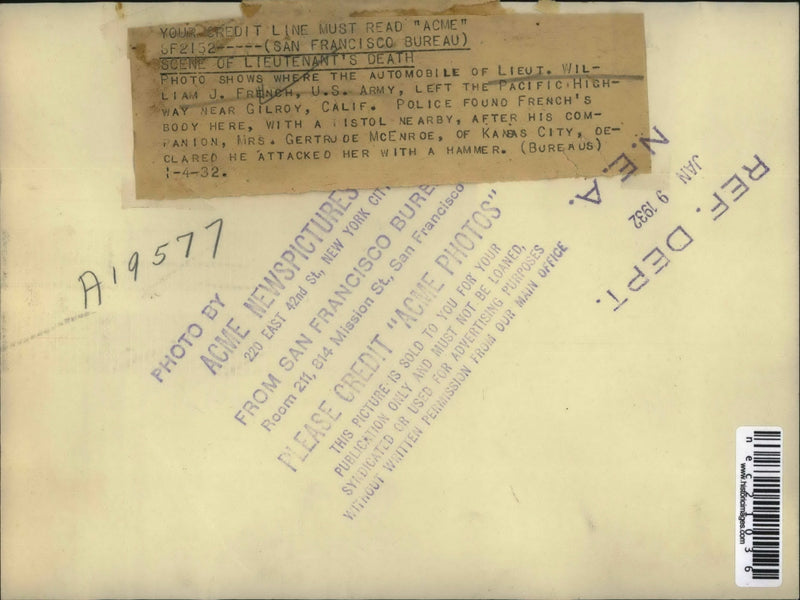 YOUR CREDIT LINE MUST READ "ACME"
SF2152-----(SAN FRANCISCO BUREAU)
SCENE OF LIEUTENANT'S DEATH
PHOTO SHOWS WHERE THE AUTOMOBILE OF LIEUT. WIL-
LIAM J. FRENCH, U.S. ARMY, LEFT THE PACIFIC HIGH-
WAY NEAR GILROY, CALIF. POLICE FOUND FRENCH'S
BODY HERE, WITH A PISTOL NEARBY, AFTER HIS COM-
PANION, MRS. GERTRUDE MCENROE, OF KANSAS CITY, DE-
CLARED HE ATTACKED HER WITH A HAMMER. (BUREAUS)
1-4-32.
A19577
PHOTO BY
ACME NEWSPICTURES
220 EAST 42nd St., NEW YORK CITY
FROM SAN FRANCISCO BUREAU
Room 211, 814 Mission St., San Francisco
PLEASE CREDIT "ACME PHOTOS"
THIS PICTURE IS SOLD TO YOU FOR YOUR
PUBLICATION ONLY AND MUST NOT BE LOANED,
SYNDICATED OR USED FOR ADVERTISING PURPOSES
WITHOUT WRITTEN PERMISSION FROM OUR MAIN OFFICE
REF. DEPT.
JAN 9 1932
N.E.A.
www.historicimages.com
nec21036